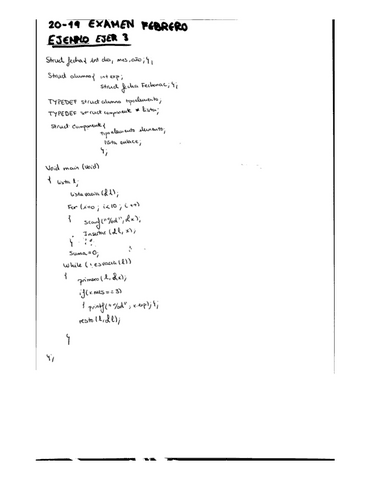 20-19 EXAMEN FEBRERO
EJEMNO EJER 3
Struct fecha { int dia, mes, año; };
Struct alumno { int exp;
struct fecha FechaNac; };
TYPEDEF struct alumno tipoelemento;
TYPEDEF struct componente * lista;
struct componente {
tipoelemento elemento;
lista enlace;
};
Void main (void)
{ lista l;
listavacia (&l);
For (x=0; i<10; i++)
{ scanf("%d", &x);
Insertar (&l, x);
}
Suma=0;
While (!esvacia(l))
{ primero (l, &x);
if(x.mes==3)
{ printf("%d", x.exp); };
resto (l, &l);
}
};